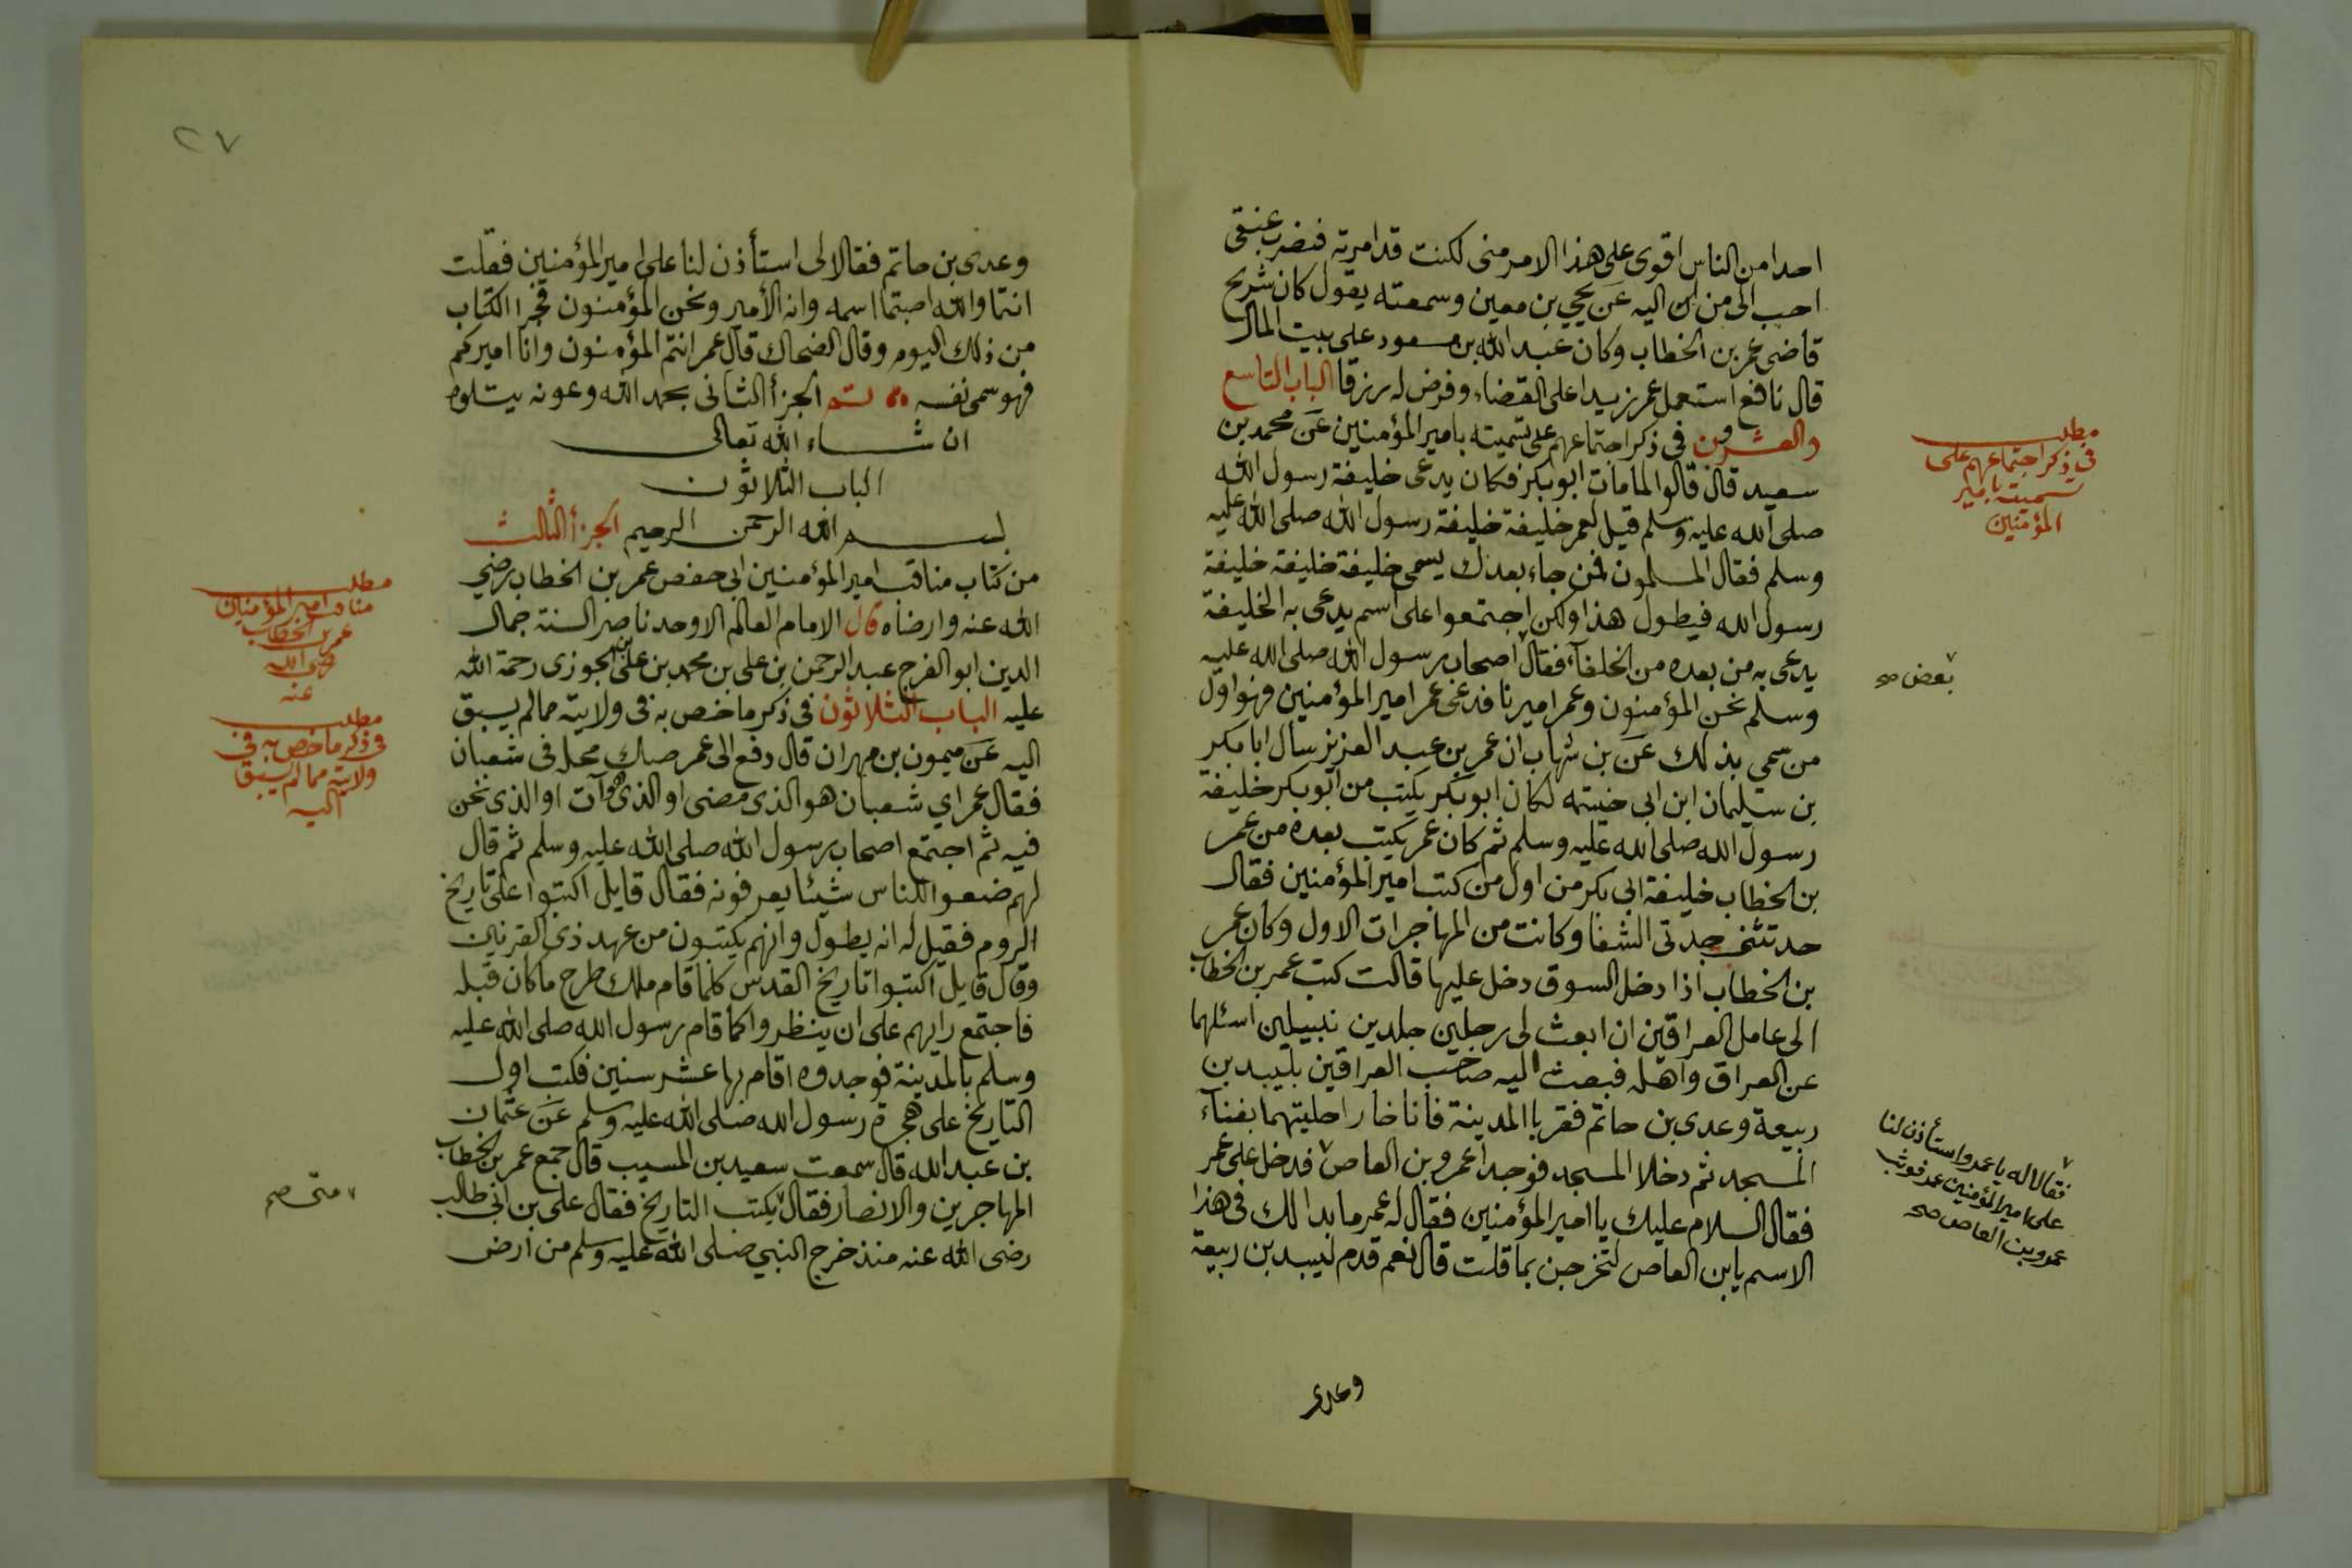 احدا من الناس اقوى على هذا الامر منى لكنت قد امرته فنضرب عنقى
احب الى من ان اليه عن يحيى بن معين وسمعته يقول كان شريح
قاضى عمر بن الخطاب وكان عبد الله بن مسعود على بيت المال
قال نافع استعمل عمر زيدا على القضاء وفرض له رزقا الباب التاسع
والعشرون فى ذكر اجتماعهم على تسميته بامير المؤمنين عن محمد بن
سعيد قال قالوا لما مات ابو بكر فكان يدعى خليفة رسول الله
صلى الله عليه وسلم قيل لعمر خليفة خليفة رسول الله صلى الله عليه
وسلم فقال المسلمون فمن جاء بعدك يسمى خليفة خليفة خليفة
رسول الله فيطول هذا ولكن اجتمعوا على اسم يدعى به الخليفة
يدعى به من بعده من الخلفآء فقال ٧ اصحاب رسول الله صلى الله عليه
وسلم نحن المؤمنون وعمر اميرنا فدعى عمر امير المؤمنين فهو اول
من سمى بذلك عن بن شهاب ان عمر بن عبد العزيز سال ابا بكر
بن سليمان ابن ابى خيثمه لكان ابو بكر يكتب من ابو بكر خليفة
رسول الله صلى الله عليه وسلم ثم كان عمر يكتب بعده من عمر
بن الخطاب خليفة ابى بكر من اول من كتب امير المؤمنين فقال
حدثتنى جدتى الشفا وكانت من المهاجرات الاول وكان عمر
بن الخطاب اذا دخل السوق دخل عليها قالت كتب عمر بن الخطاب
الى عامل العراقين ان ابعث لى رجلين جلدين نبيلين اسئلهما
عن العراق واهله فبعث اليه صاحب العراقين بلبيد بن
ربيعة وعدى بن حاتم فقربا المدينة فاناخا راحلتيهما بفنآء
المسجد ثم دخلا المسجد فوجدا عمرو بن العاص ٧ فدخل على عمر
فقال السلام عليك يا امير المؤمنين فقال له عمر ما بدا لك فى هذا
الاسم يابن العاص لتخرجن بما قلت قال نعم قدم لبيد بن ربيعة
وعدى
مطلب
فى ذكر اجتماعهم على
تسميته بامير
المؤمنين
٧ بعض صح
٧ فقالا له يا عمرو استأذن لنا
على امير المؤمنين عمر فوثب
عمرو بن العاص صح
٢٧
وعدى بن حاتم فقالا لى استأذن لنا على امير المؤمنين فقلت
انتما والله اصبتما اسمه وانه الأمير ونحن المؤمنون فجرا الكتاب
من ذلك اليوم وقال الضحاك قال عمر انتم المؤمنون وانا اميركم
فهو سمى نفسه تم الجزأ الثانى بحمد الله وعونه يتلوه
ان شاء الله تعالى
الباب الثلاثون
بسم الله الرحمن الرحيم الجزأ الثالث
من كتاب مناقب امير المؤمنين ابى حفص عمر بن الخطاب رضى
الله عنه وارضاه قال الامام العالم الاوحد ناصر السنة جمال
الدين ابو الفرج عبد الرحمن بن على بن محمد بن على بن الجوزى رحمة الله
عليه الباب الثلاثون فى ذكر ما خص به فى ولايته مما لم يسبق
اليه عن ميمون بن مهران قال دفع الى عمر صك محله فى شعبان
فقال عمر اي شعبان هو الذى مضى او الذى هو آت او الذى نحن
فيه ثم اجتمع اصحاب رسول الله صلى الله عليه وسلم ثم قال
لهم ضعوا للناس شيئا يعرفونه فقال قايل اكتبوا على تاريخ
الروم فقيل له انه يطول وانهم يكتبون من عهد ذى القرنين
وقال قايل اكتبوا تاريخ القدس كلما قام ملك طرح ما كان قبله
فاجتمع رايهم على ان ينظروا كما قام رسول الله صلى الله عليه
وسلم بالمدينة فوجدوه اقام بها عشر سنين فكتب اول
التاريخ على هجرة رسول الله صلى الله عليه وسلم عن عثمان
بن عبد الله قال سمعت سعيد بن المسيب قال جمع عمر بن الخطاب
المهاجرين والانصار فقال ٧ يكتب التاريخ فقال على بن ابى طالب
رضى الله عنه منذ خرج النبي صلى الله عليه وسلم من ارض
مطلب
مناقب امير المؤمنين
عمر بن الخطاب
رضى الله
عنه
مطلب
فى ذكر ما خص به فى
ولايته مما لم يسبق
اليه
٧ متى صح